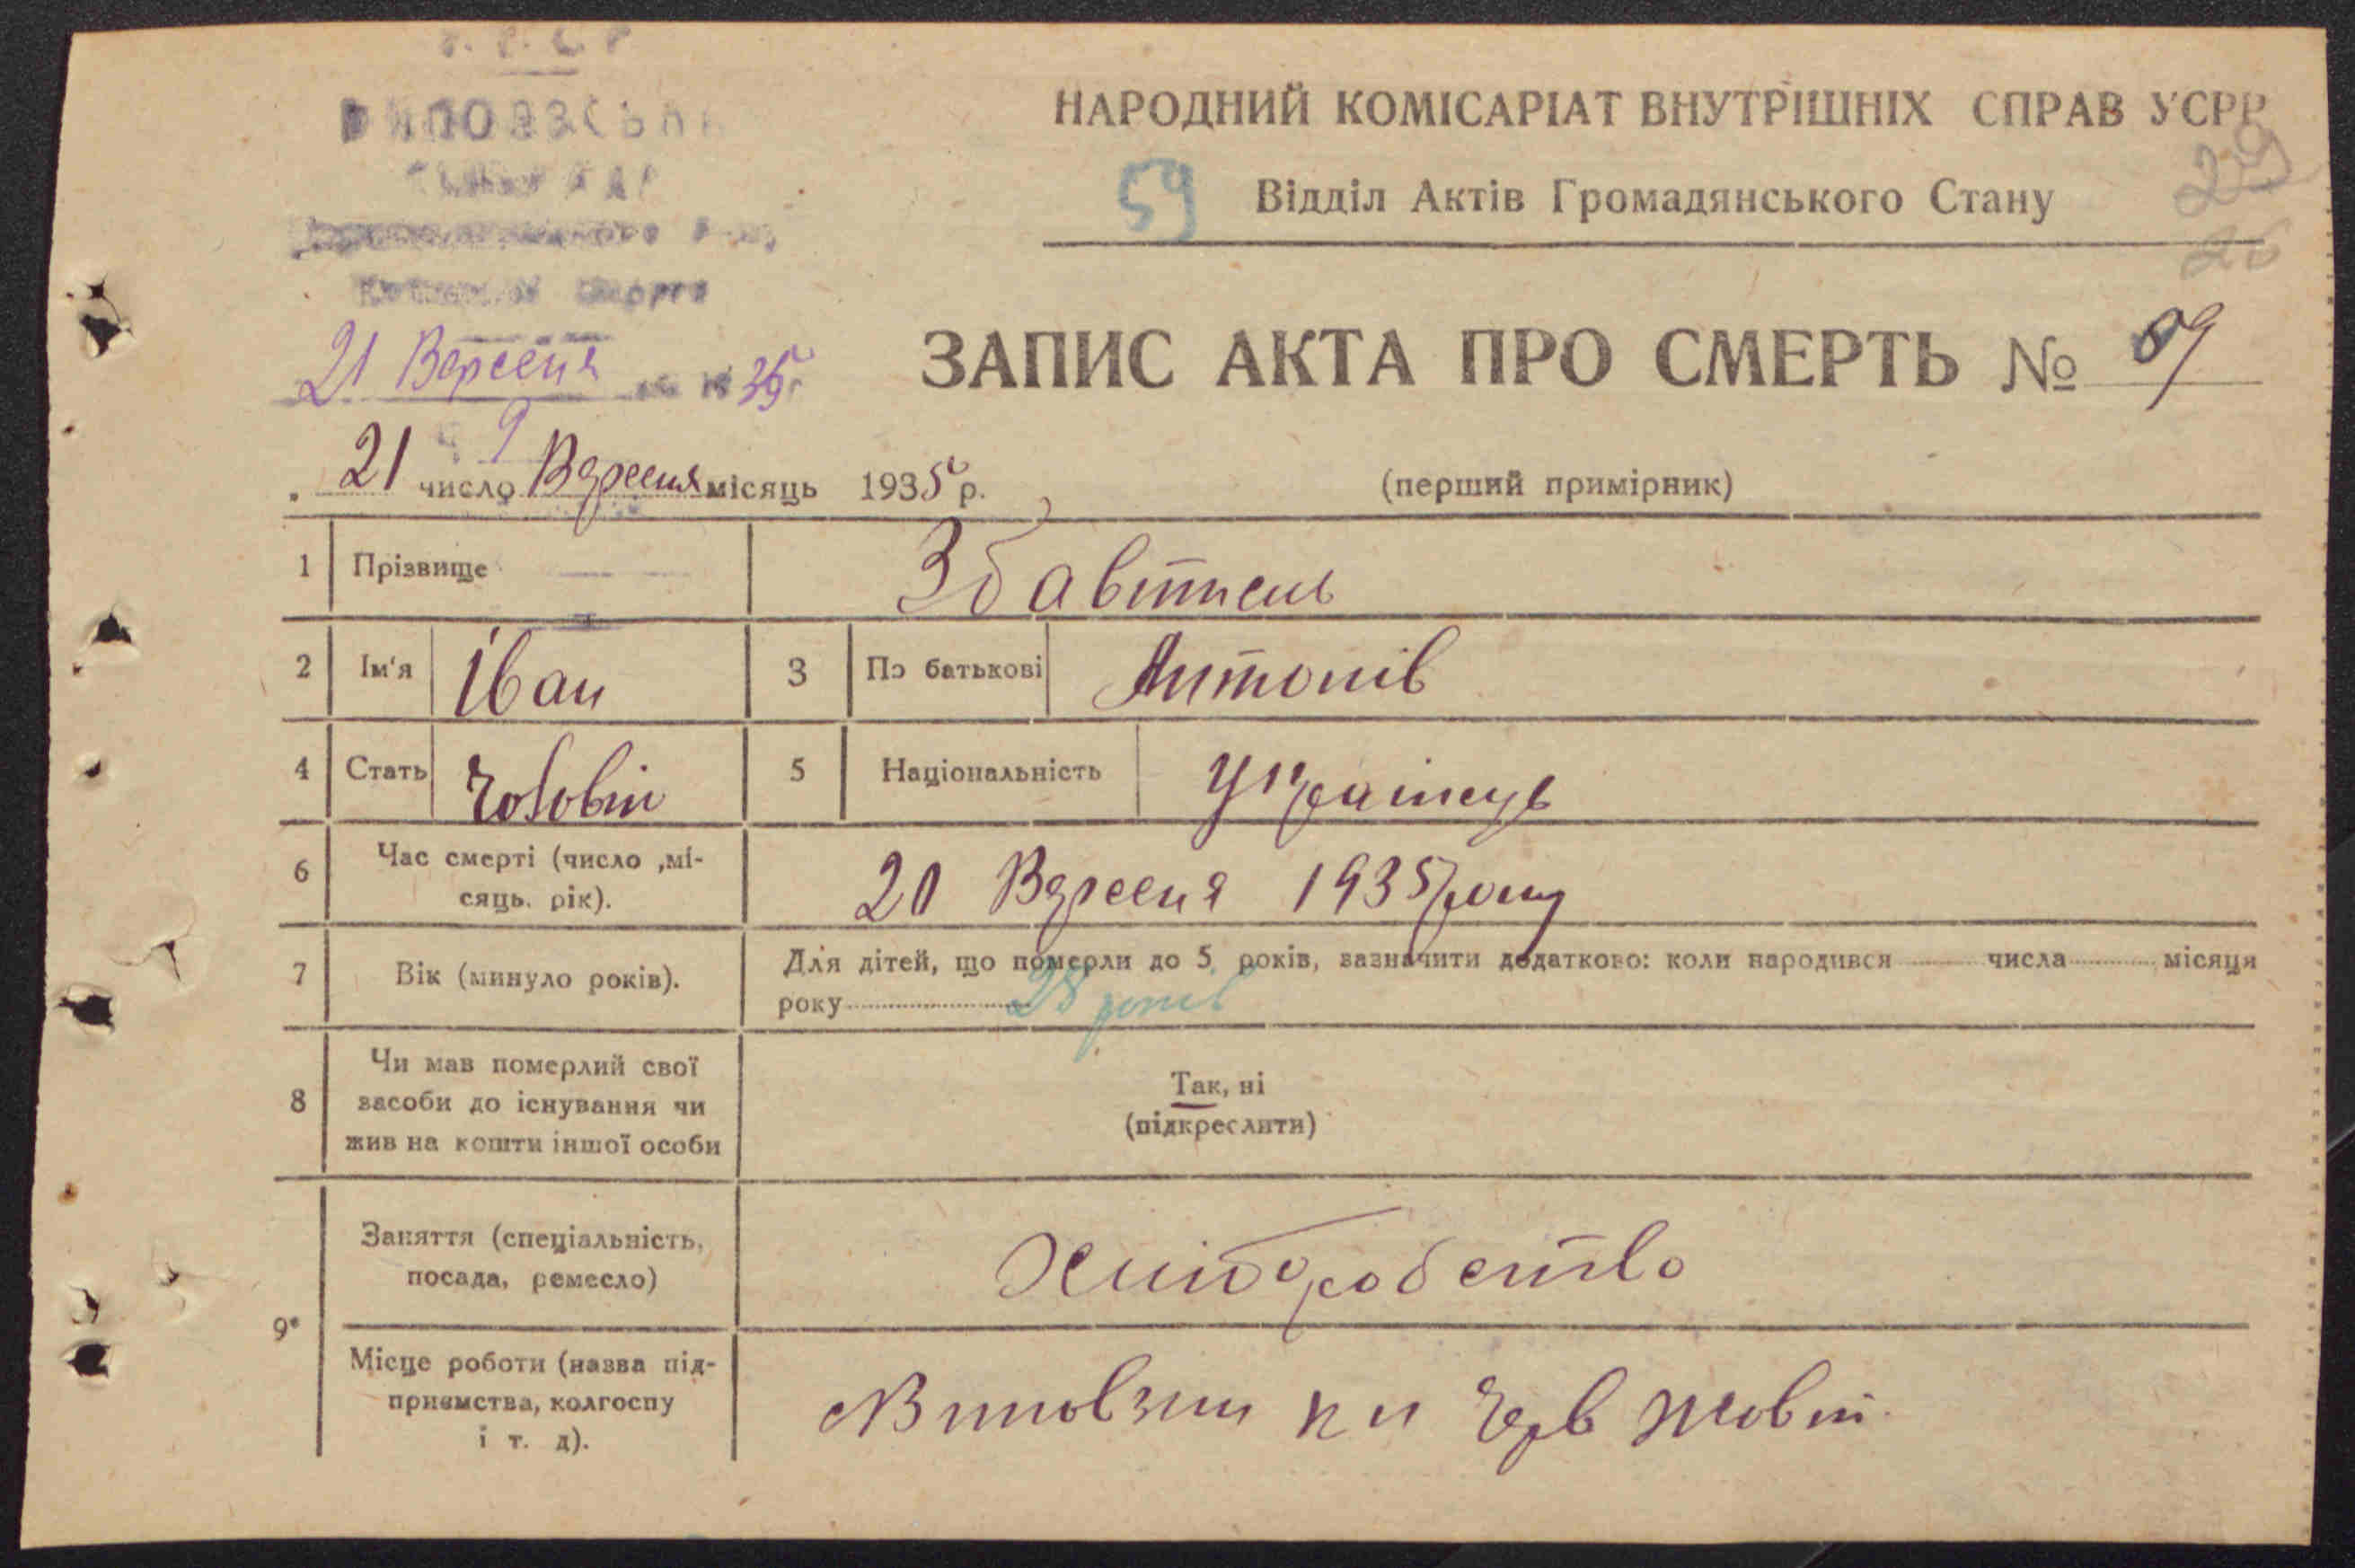 НАРОДНИЙ КОМІСАРІАТ ВНУТРІШНІХ СПРАВ УСРР
59 Відділ Актів Громадянського Стану
29
26
21 Вересня 35
ЗАПИС АКТА ПРО СМЕРТЬ № 59
9
21 число Вересня місяць 1935 р.
(перший примірник)
1 Прізвище
2 Ім'я Іван 3 По батькові Антонів
4 Стать Чоловіч 5 Національність Українець
6 Час смерті (число ,мі-
сяць. рік).
20 Вересня 1935 року
7 Вік (минуло років).
Для дітей, що померли до 5 років, зазначити додатково: коли народився числа місяця
року 28 років
8 Чи мав померлий свої
засоби до існування чи
жив на кошти іншої особи
Так, ні
(підкреслити)
9 Заняття (спеціальність,
посада, ремесло)
Хліборобство
Місце роботи (назва під-
приємства, колгоспу
і т. д).
Черв Жовт